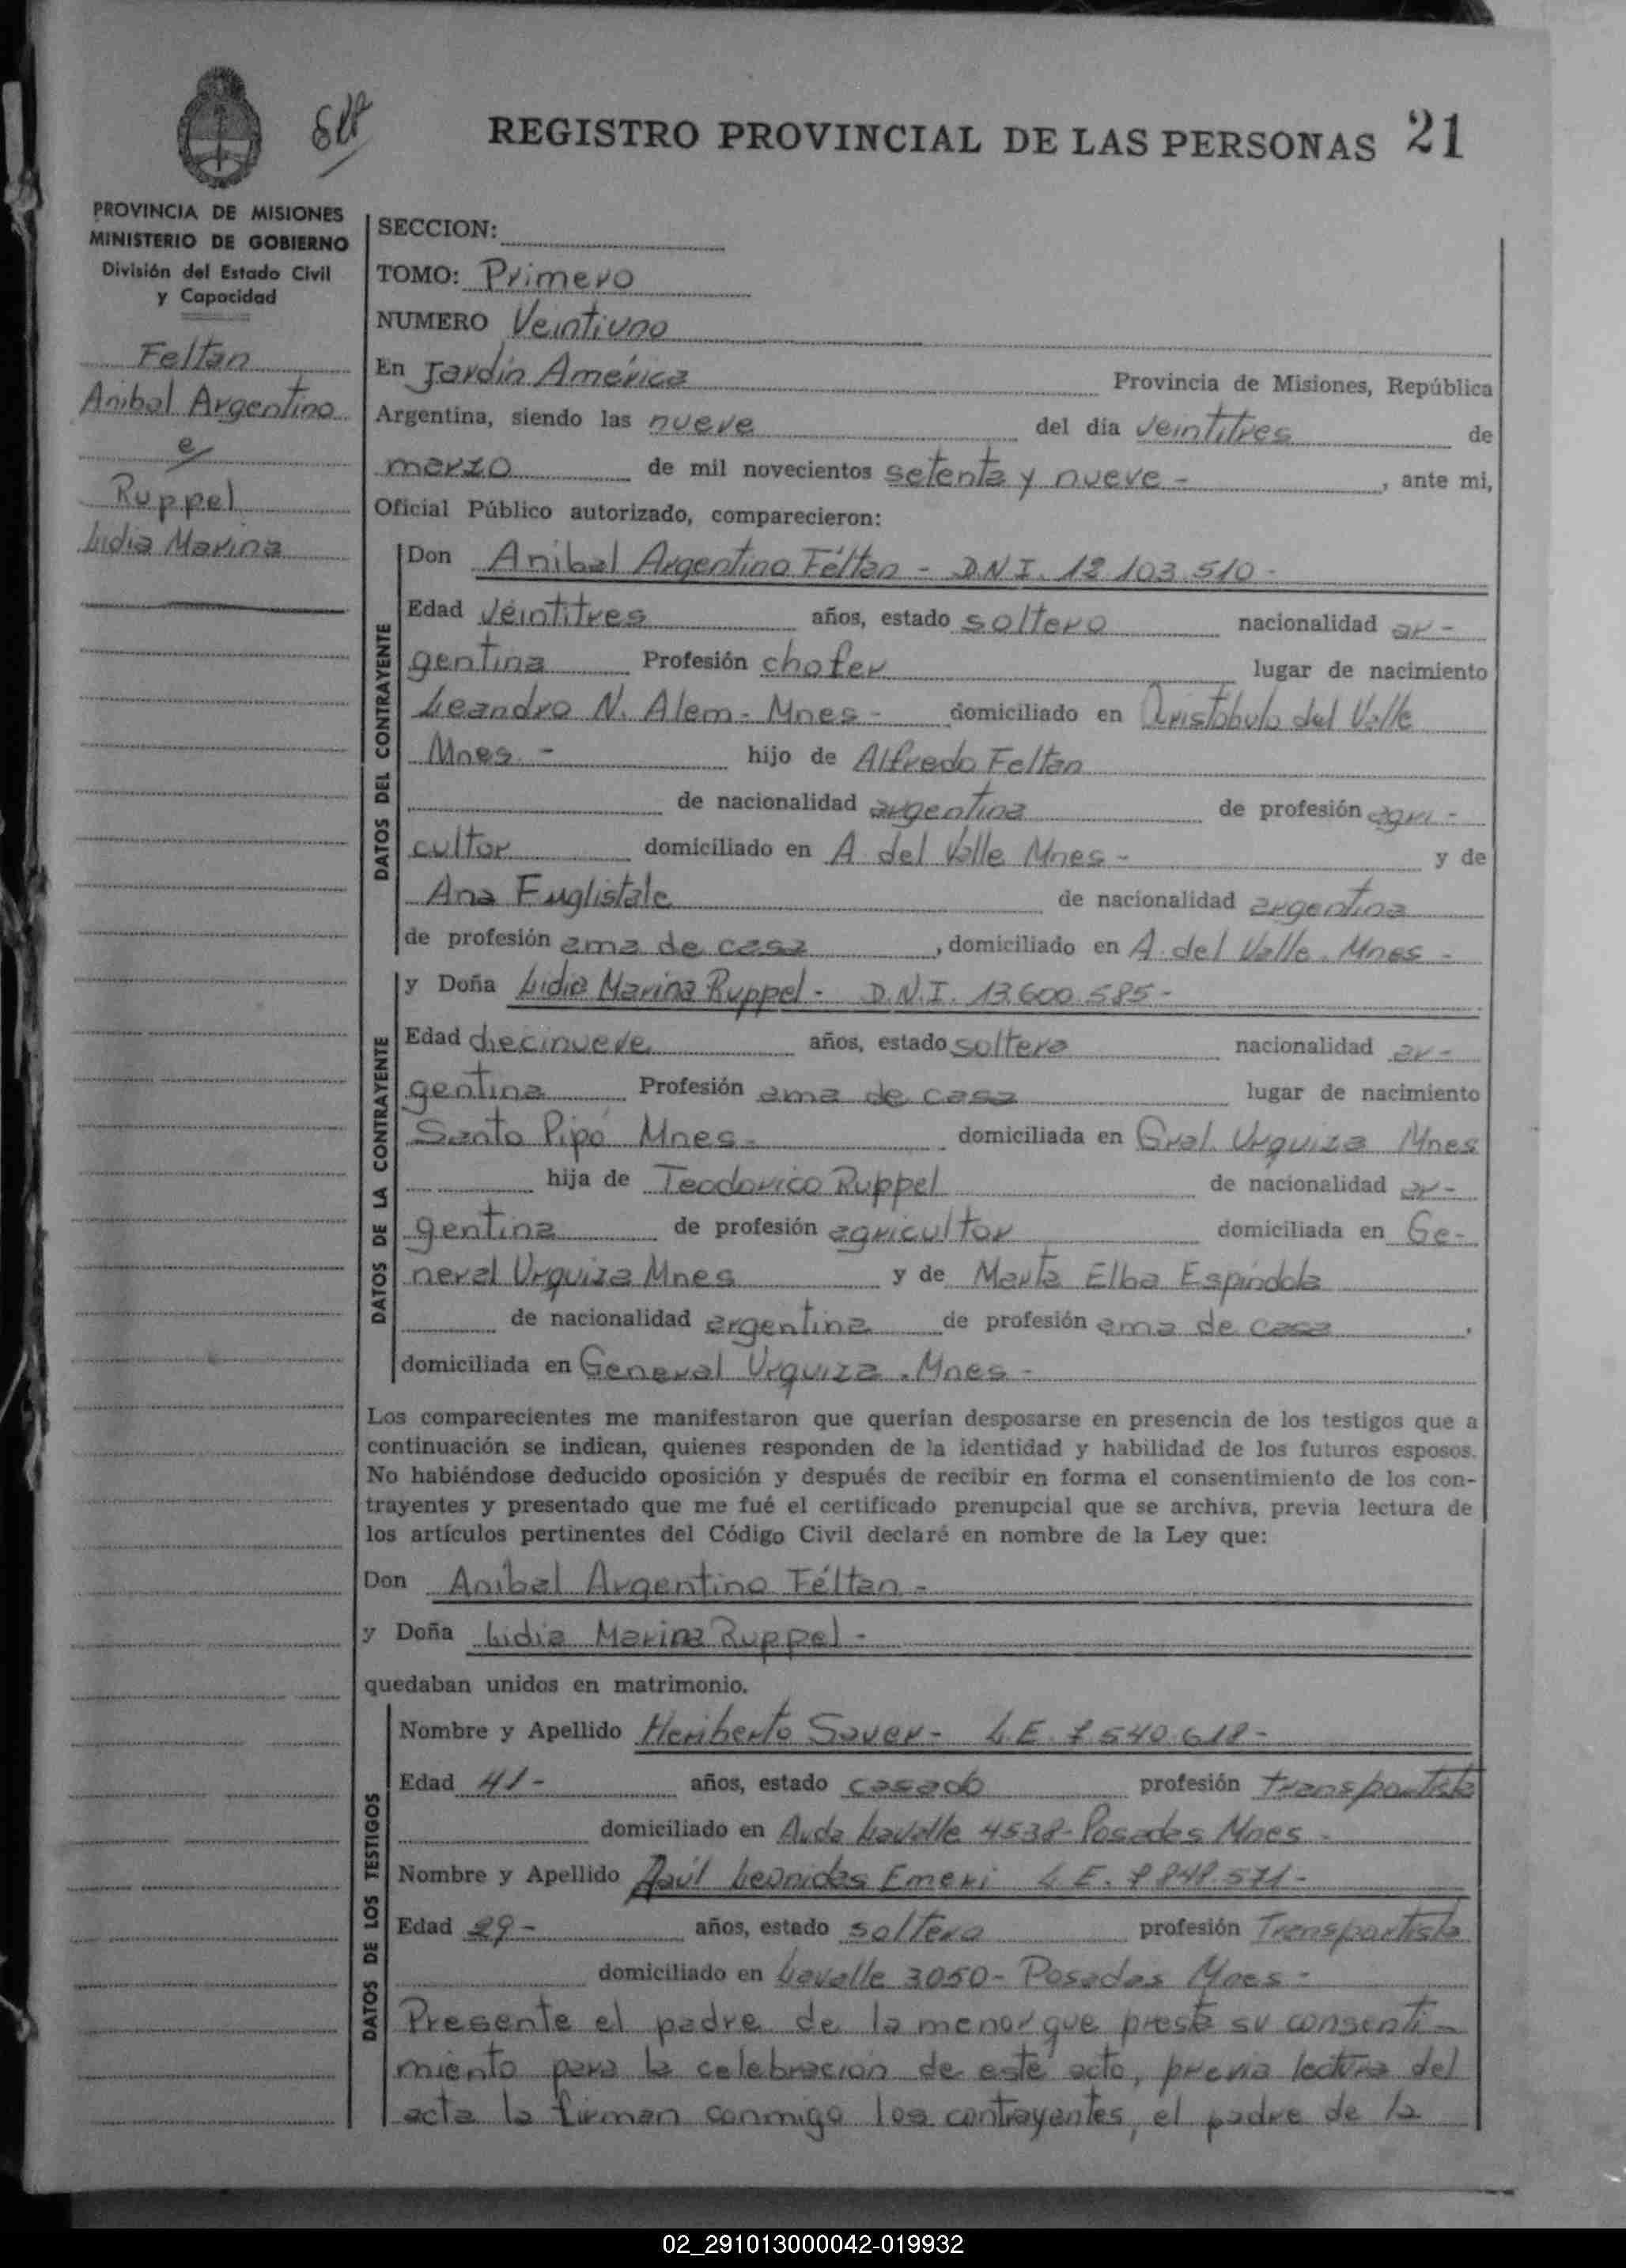 REGISTRO PROVINCIAL DE LAS PERSONAS 21
PROVINCIA DE MISIONES
MINISTERIO DE GOBIERNO
División del Estado Civil
y Capacidad
Feltan
Anibal Argentino
e/
Ruppel
Lidia Marina
SECCION:
TOMO: Primero
NUMERO Veintiuno
En Jardín América Provincia de Misiones, República
Argentina, siendo las nueve del día veintitres de
marzo de mil novecientos setenta y nueve - , ante mi,
Oficial Público autorizado, comparecieron:
DATOS DEL CONTRAYENTE
Don Anibal Argentino Féltan - D.N.I. 12.103.510-
Edad veintitres años, estado soltero nacionalidad ar-
gentina Profesión chofer lugar de nacimiento
Leandro N. Alem - Mnes - domiciliado en Aristóbulo del Valle
Mnes - hijo de Alfredo Feltan
de nacionalidad argentina de profesión agri-
cultor domiciliado en A del Valle Mnes - y de
Ana Fuglistale de nacionalidad argentina
de profesión ama de casa , domiciliado en A. del Valle. Mnes -
DATOS DE LA CONTRAYENTE
y Doña Lidia Marina Ruppel - D.N.I. 13.600.585-
Edad diecinueve años, estado soltera nacionalidad ar-
gentina Profesión ama de casa lugar de nacimiento
Santo Pipó Mnes - domiciliada en Gral. Urquiza Mnes
hija de Teodorico Ruppel de nacionalidad ar-
gentina de profesión agricultor domiciliada en Ge-
neral Urquiza Mnes y de Marta Elba Espíndola
de nacionalidad argentina de profesión ama de casa ,
domiciliada en General Urquiza. Mnes -
Los comparecientes me manifestaron que querían desposarse en presencia de los testigos que a
continuación se indican, quienes responden de la identidad y habilidad de los futuros esposos.
No habiéndose deducido oposición y después de recibir en forma el consentimiento de los con-
trayentes y presentado que me fué el certificado prenupcial que se archiva, previa lectura de
los artículos pertinentes del Código Civil declaré en nombre de la Ley que:
Don Anibal Argentino Féltan -
y Doña Lidia Marina Ruppel -
quedaban unidos en matrimonio.
DATOS DE LOS TESTIGOS
Nombre y Apellido Heriberto Sauer - L.E. 7.540.618-
Edad 41- años, estado casado profesión transportista
domiciliado en Avda Lavalle 4538- Posadas Mnes -
Nombre y Apellido Raúl Leonidas Emeri L.E.
Edad 29- años, estado soltero profesión Transportista
domiciliado en Lavalle 3050- Posadas Mnes -
Presente el padre de la menor que presta su consenti-
miento para la celebración de este acto, previa lectura del
acta la firman conmigo los contrayentes, el padre de la
02_291013000042-019932